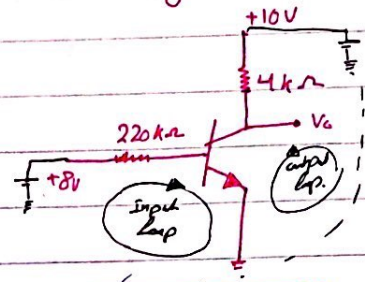 +10V
4kΩ
220kΩ
Vo
+8V
Input
loop
output
loop.